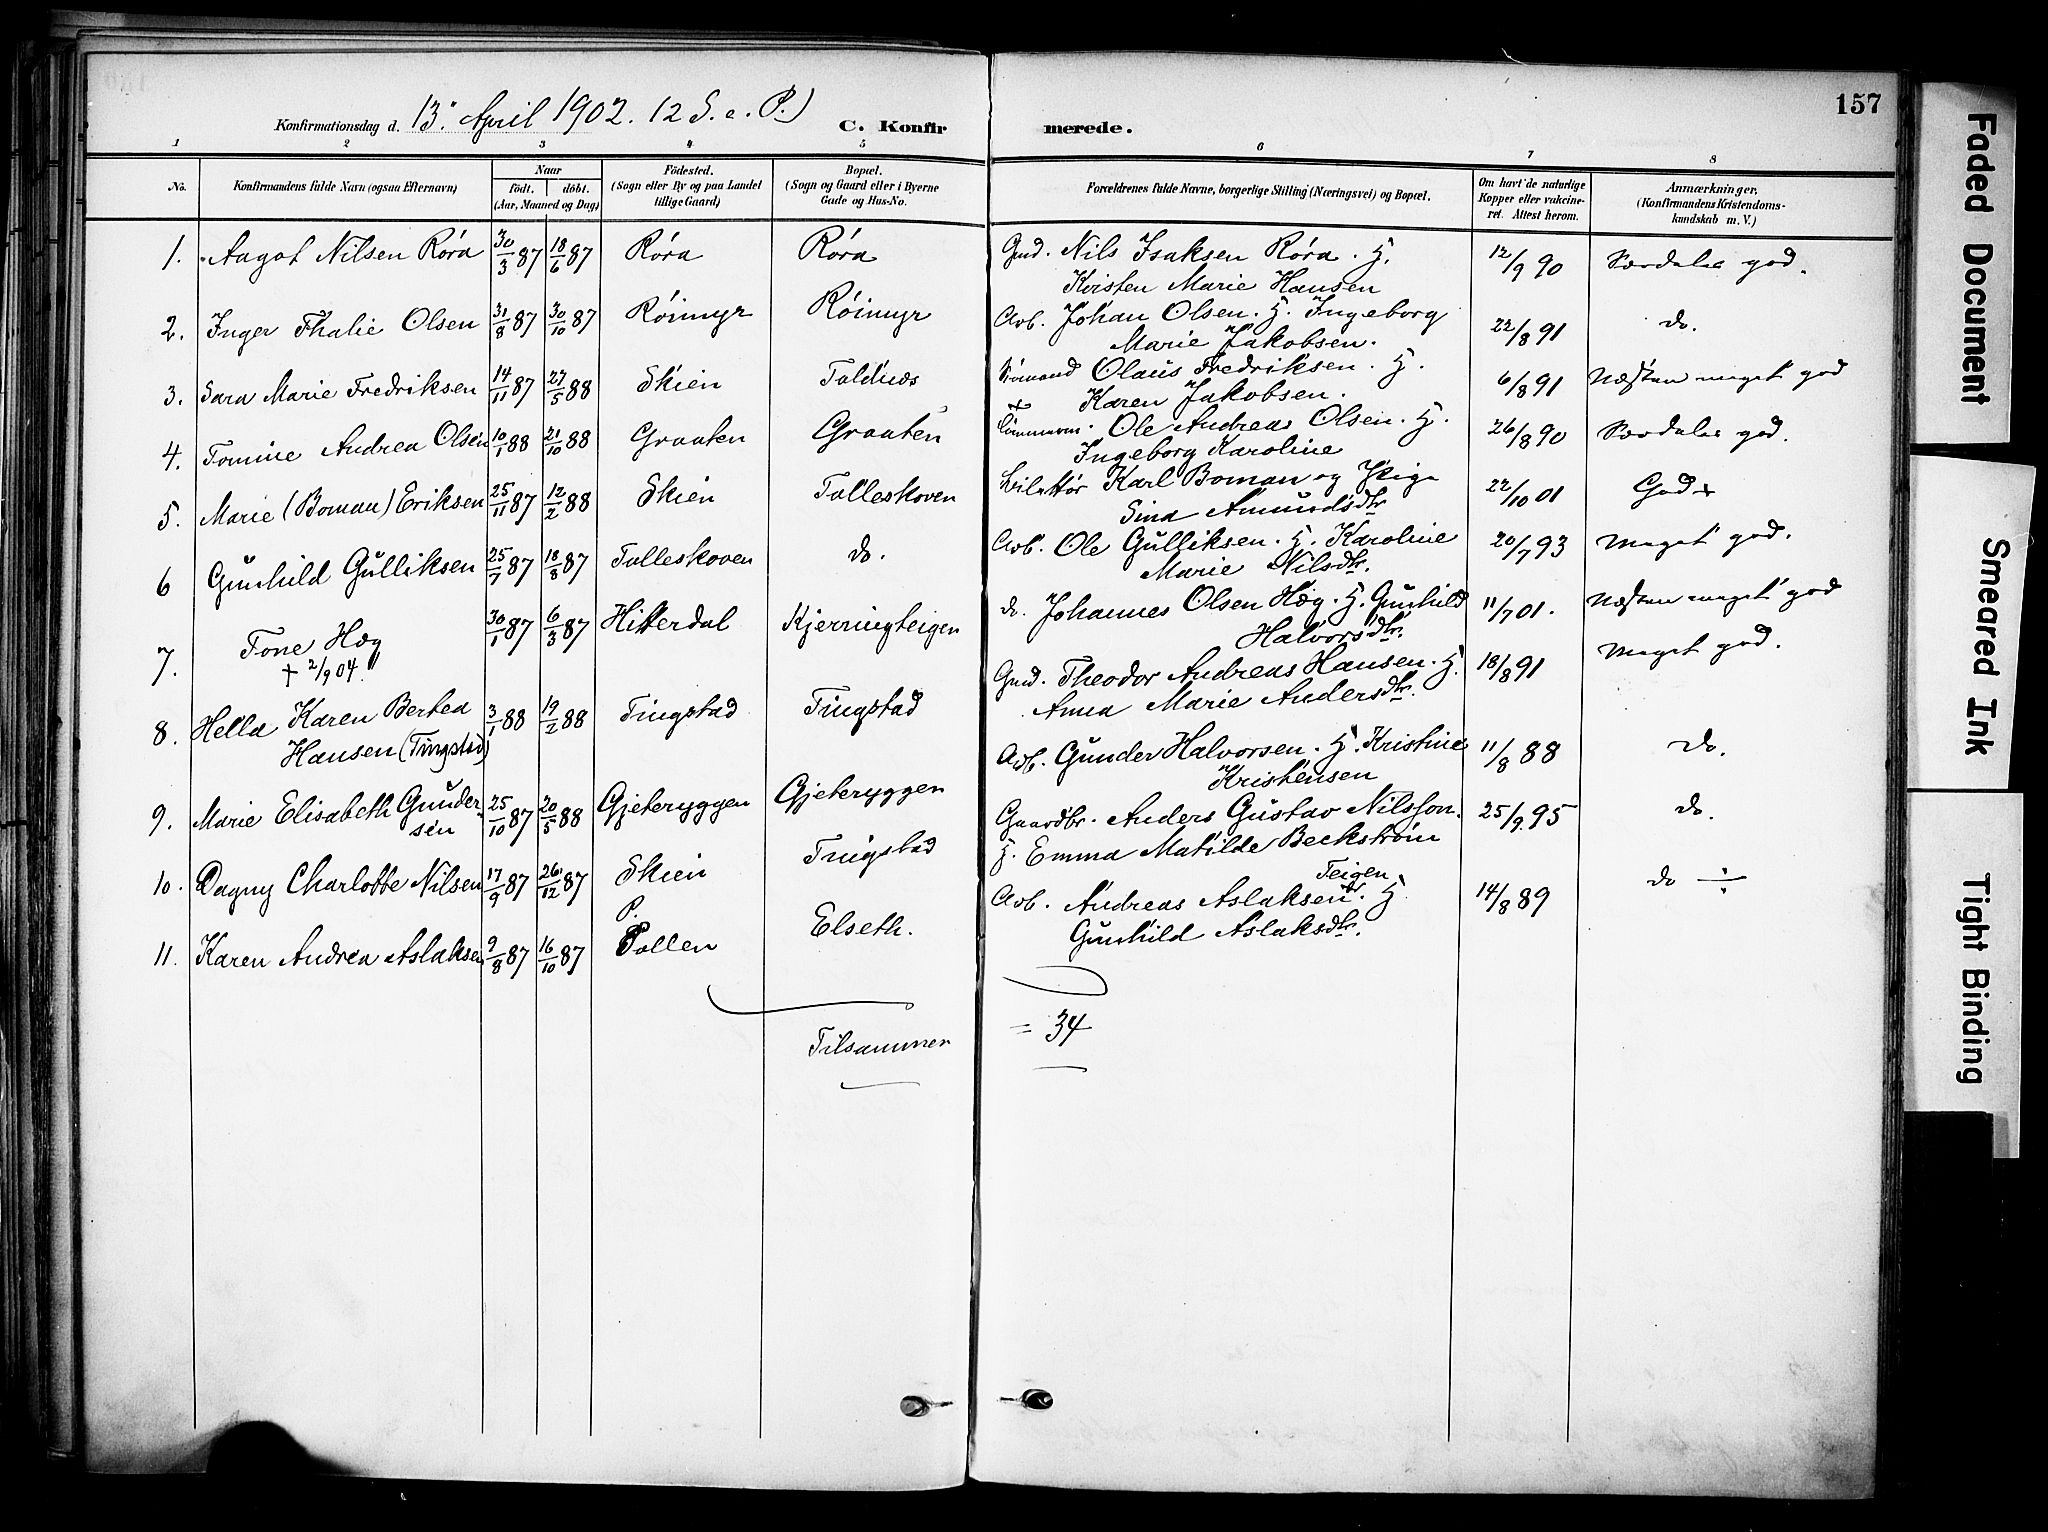 157
Konfirmationsdag d. 13. April 1902. 12 S. e. P.)
C. Konfirmerede.
1 2 3 4 5 6 7 8
No. Konfirmandens fulde Navn (ogsaa Efternavn) Naar født. døbt. (Aar, Maaned og Dag) Fødested. (Sogn eller By og paa Landet tillige Gaard) Bopæl. (Sogn og Gaard eller i Byerne Gade og Hus-No. Forældrenes fulde Navne, borgerlige Stilling (Næringsvei) og Bopæl. Om havt de naturlige Kopper eller vakcineret. Attest herom. Anmærkninger. (Konfirmandens Kristendomskundskab m. V.)
1. Aagot Nilsen Róra 30/3 87 18/6 87 Róra Róra Gmd. Nils Isaksen Róra. H. 12/9 90 god.
Kirsten Marie Hansen
2. Inger Thalie Olsen 31/8 87 30/10 87 Róimyr Róimyr Arb. Johan Olsen. H. Ingeborg 22/8 91 do.
Marie Jakobsen.
3. Sara Marie Fredriksen 14/11 87 27/5 88 Skien Toldnes Sómand Olaus Fredriksen. H. 6/8 91 Næsten meget god
Karen Jakobsen.
4. Tomine Andrea Olsen 10/1 88 21/10 88 Graaten Graaten Tómmerm. Ole Andreas Olsen. H. 26/8 90 god.
Ingeborg Karoline
5. Marie (Boman) Eriksen 25/11 87 12/2 88 Skien Tolleskoven Karl Boman og Pige 22/10 01 God +
Sina Amundsdtr
6 Gunhild Gulliksen 25/7 87 18/8 87 Tolleskoven do. Arb. Ole Gulliksen. H. Karoline 20/7 93 Meget god.
Marie Nilsdtr.
7. Tone Hæg 30/1 87 6/3 87 Hitterdal Kjerringteigen do. Johannes Olsen Hæg. H. Gunhild 11/7 01. Næsten meget god
+ 2/9 04. Halvorsdtr.
8. Hella Karen Bertea 3/1 88 19/2 88 Tingstad Tingstad Gmd. Theodor Andreas Hansen. H. 18/8 91 Meget god.
Hansen (Tingstad) Anna Marie Andersdtr.
9. Marie Elisabeth Gunder- 25/10 87 20/5 88 Gjeteryggen Gjeteryggen Arb. Gunder Halvorsen. H. Kristine 11/8 88 do.
sen Kristensen
10. Dagny Charlotte Nilsen 17/9 87 26/12 87 Skien Tingstad Gaardbr. Anders Gustav Nilsson. 25/9. 95 do.
H. Emma Matilde Beckstróm
11. Karen Andrea Aslaksen 9/8 87 16/10 87 P. Pollen Elseth. Arb. Andreas Aslaksen Teigen. H 14/8 89 do ÷
Gunhild Aslaksdtr.
Tilsammen = 34
Faded Document
Smeared Ink
Tight Binding